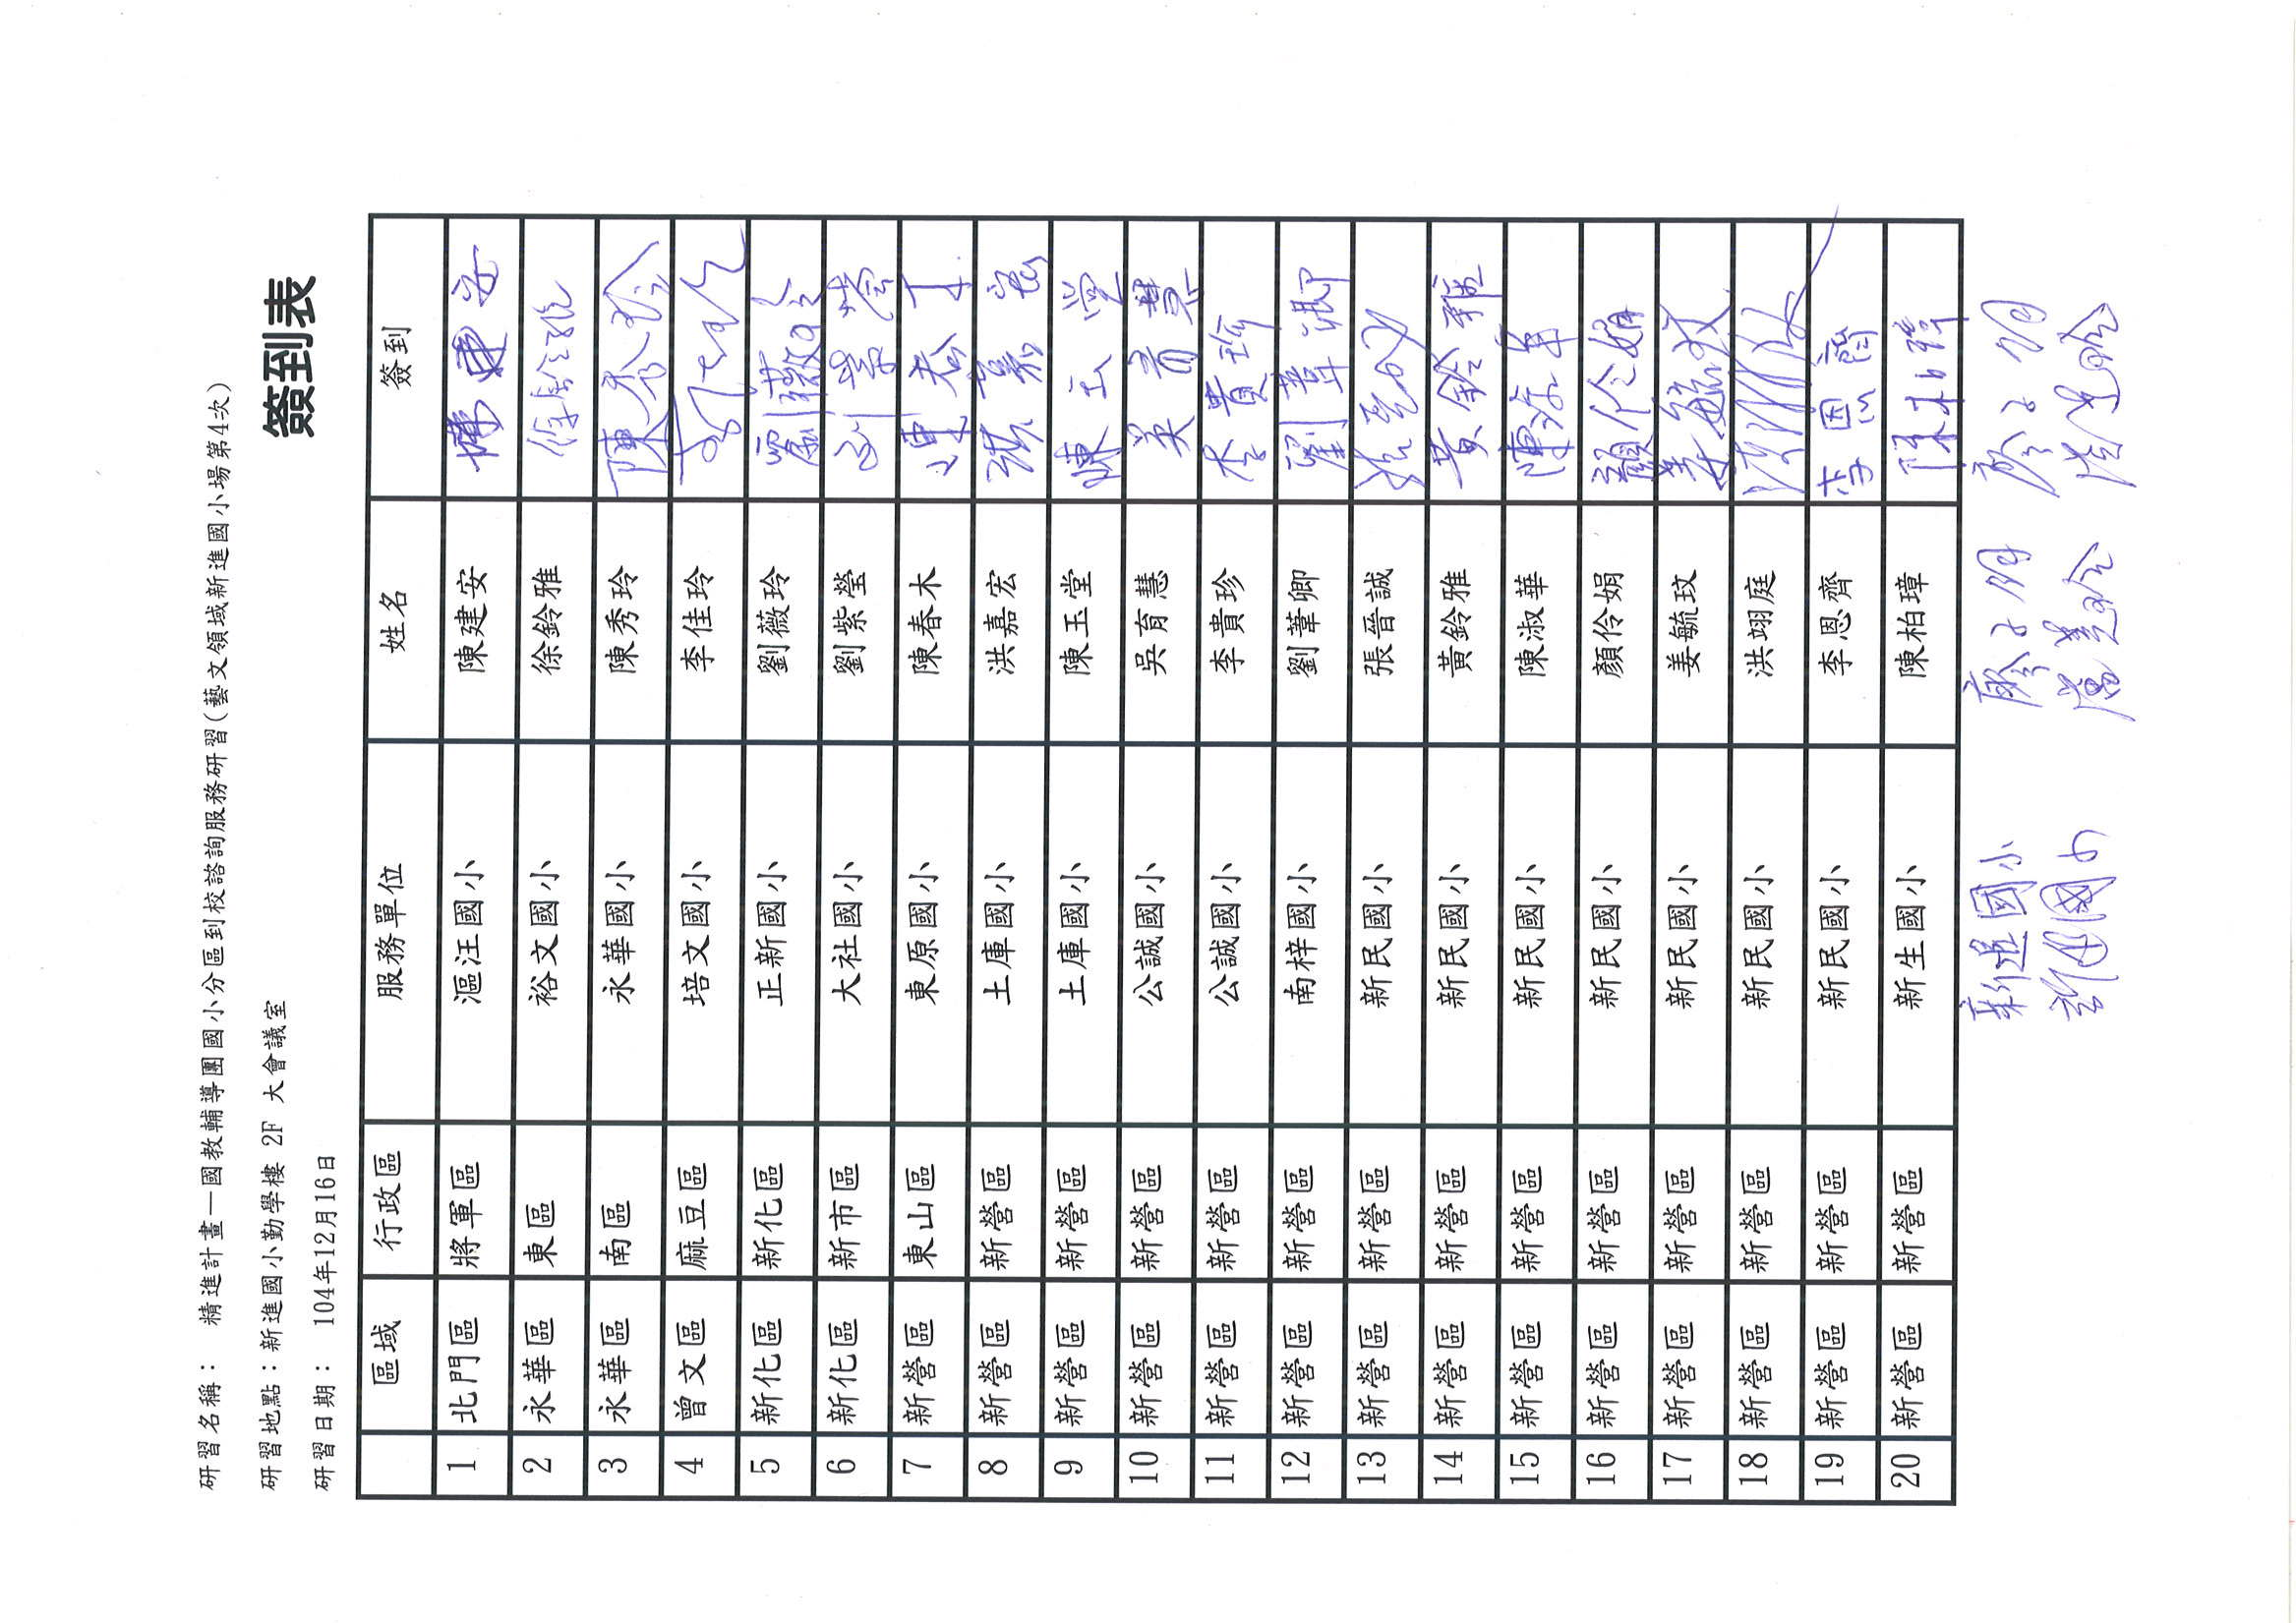 研習名稱： 精進計畫—國教輔導團國小分區到校諮詢服務研習(藝文領域新進國小場第4次)
研習地點：新進國小勤學樓 2F 大會議室
簽到表
研習日期： 104年12月16日
區域 行政區 服務單位 姓名 簽到
1 北門區 將軍區 漚汪國小 陳建安 陳建安
2 永華區 東區 裕文國小 徐鈴雅 徐鈴雅
3 永華區 南區 永華國小 陳秀玲 陳秀玲
4 曾文區 麻豆區 培文國小 李佳玲
5 新化區 新化區 正新國小 劉薇玲 劉薇玲
6 新化區 新市區 大社國小 劉紫瑩 劉紫瑩
7 新營區 東山區 東原國小 陳春木 陳春木
8 新營區 新營區 土庫國小 洪嘉宏 洪嘉宏
9 新營區 新營區 土庫國小 陳玉堂 陳玉堂
10 新營區 新營區 公誠國小 吳育慧 吳育慧
11 新營區 新營區 公誠國小 李貴珍 李貴珍
12 新營區 新營區 南梓國小 劉葦卿 劉葦卿
13 新營區 新營區 新民國小 張晉誠
14 新營區 新營區 新民國小 黃鈴雅 黃鈴雅
15 新營區 新營區 新民國小 陳淑華 陳淑華
16 新營區 新營區 新民國小 顏伶娟 顏伶娟
17 新營區 新營區 新民國小 姜毓玟 姜毓玟
18 新營區 新營區 新民國小 洪翊庭
19 新營區 新營區 新民國小 李恩齊 李恩齊
20 新營區 新營區 新生國小 陳柏璋 陳柏璋
新進國小
國小